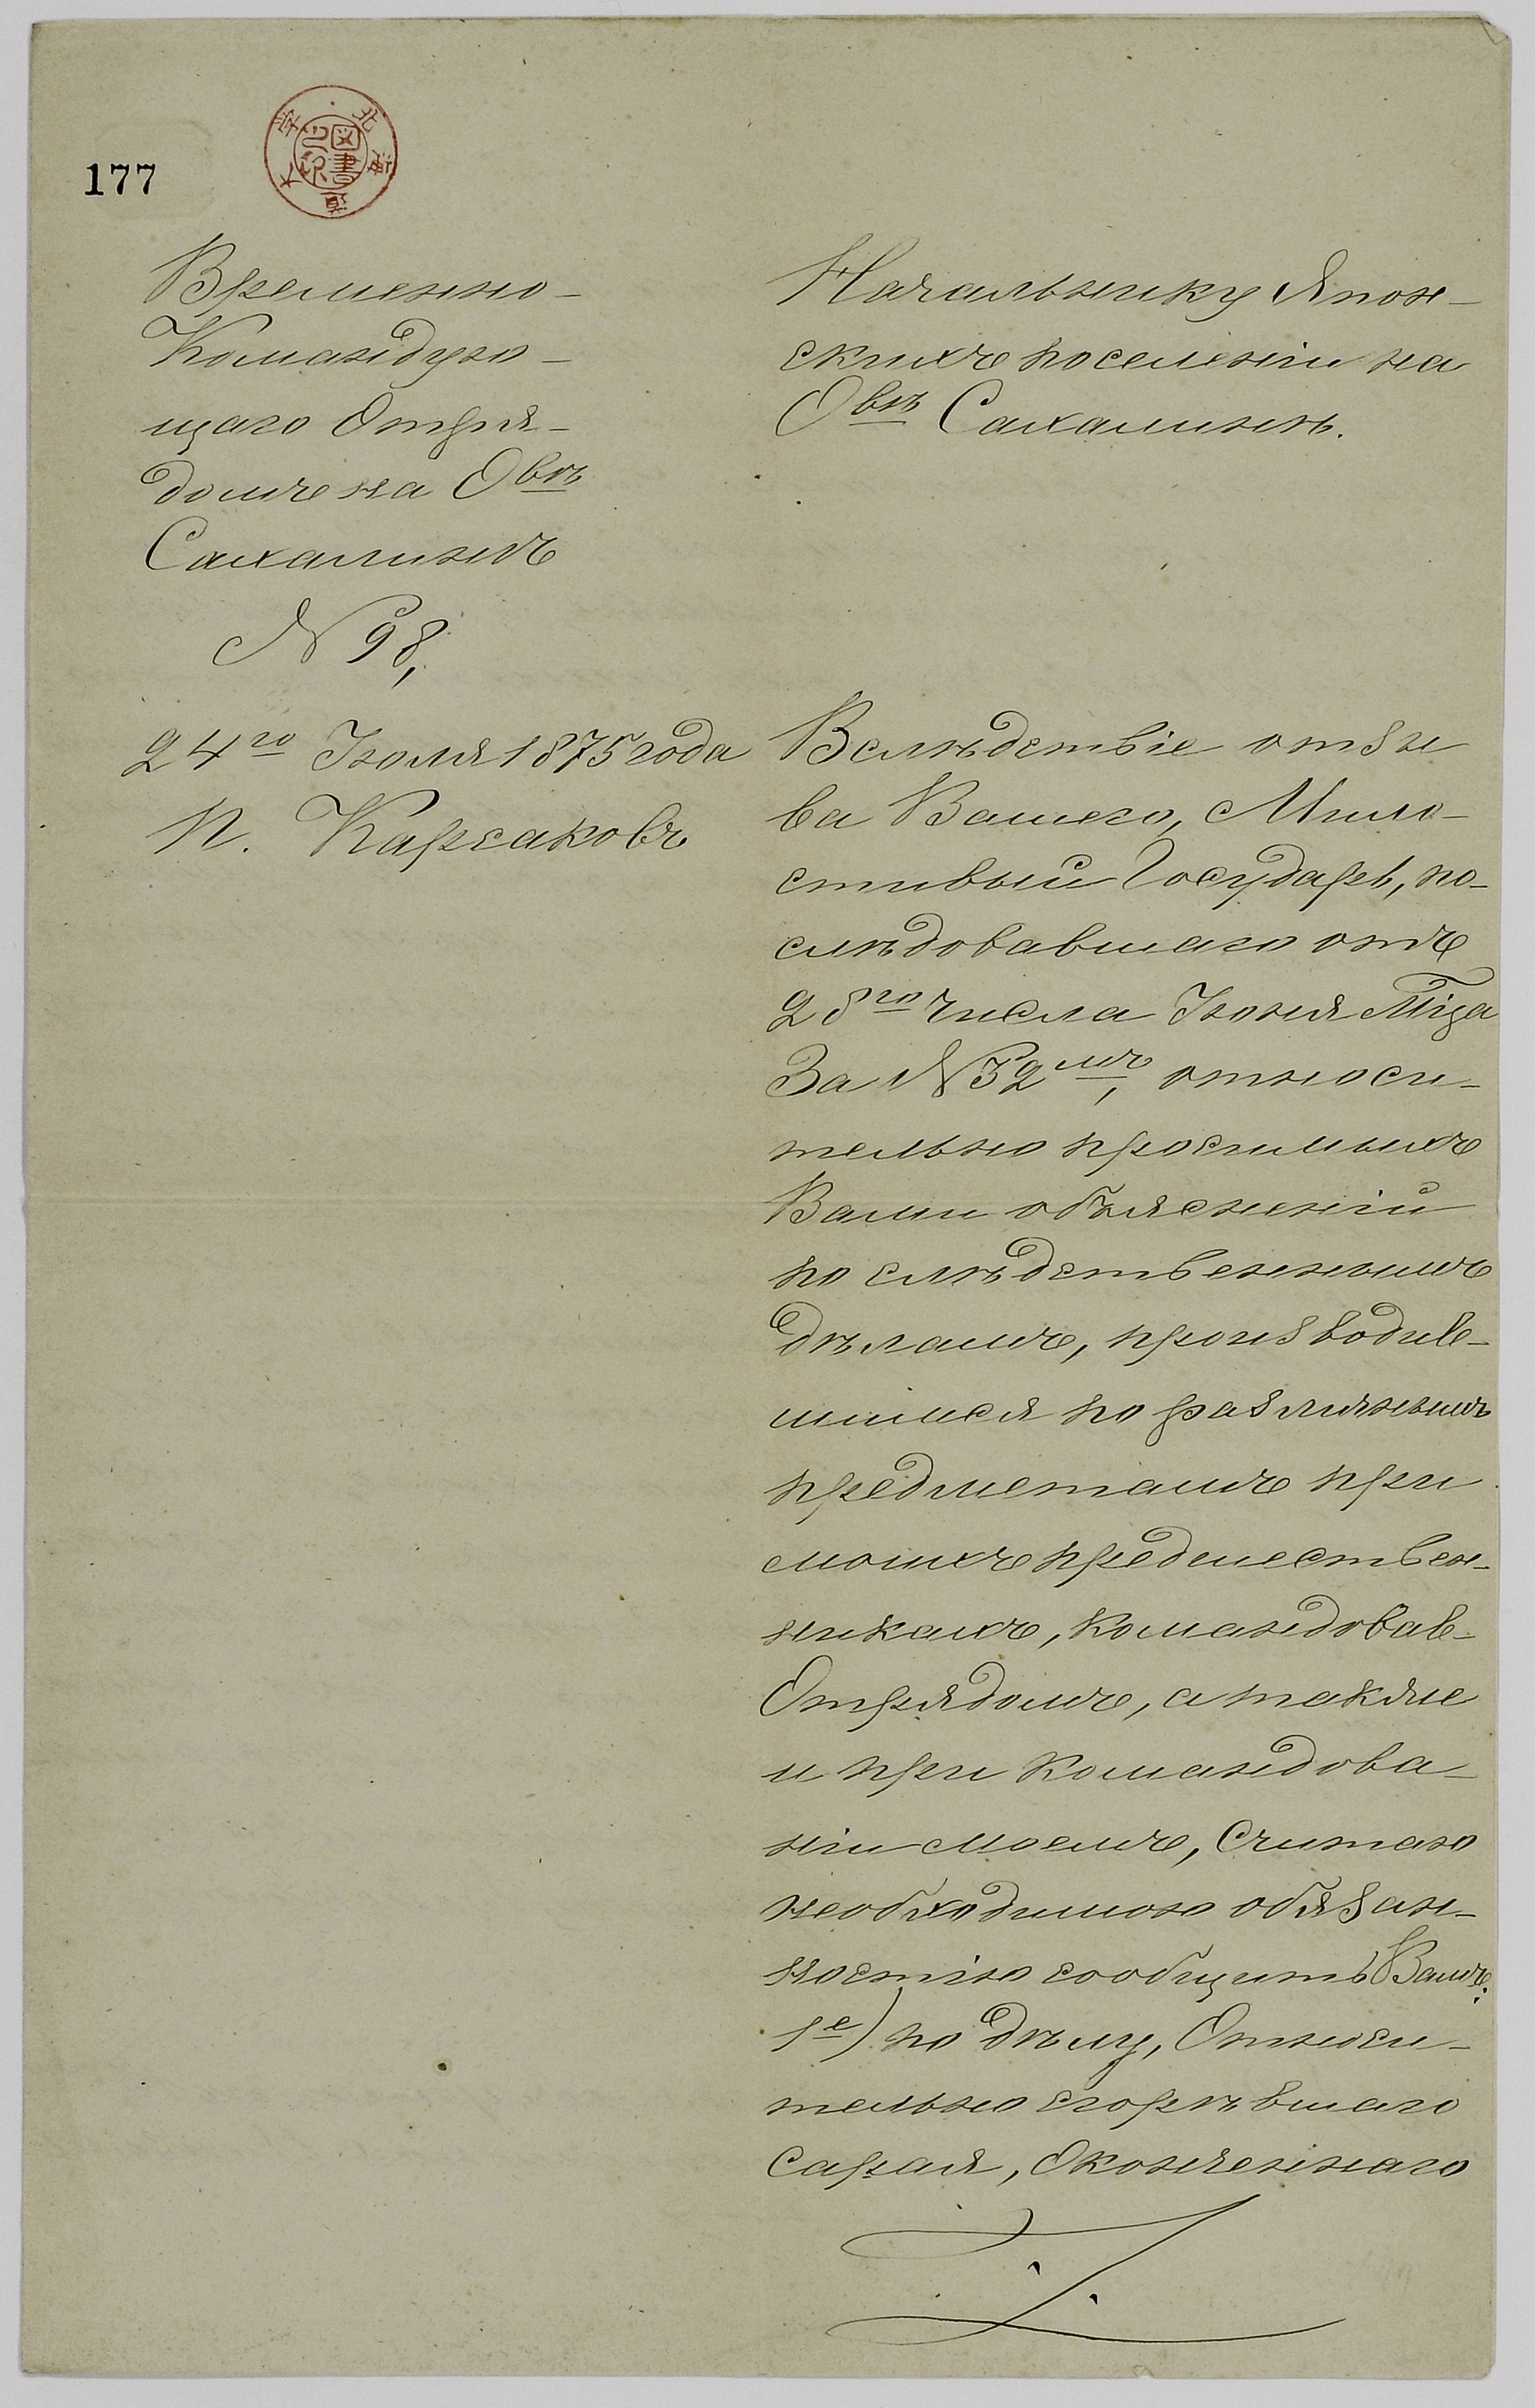 177
北海道大学
図書之印
Временно-
Командую-
щаго Отря-
домъ на О<sup>вѣ</sup>
Сахалинѣ
№ 98,
24<sup>го</sup> Іюля 1875 года
П. Карсаковъ
Начальнику Япон-
скихъ поселеніи на
О<sup>вѣ</sup> Сахалинѣ.
Вслѣдствіе отзы
ва Вашего, Мило-
стивый Государь, по-
слѣдовавшаго отъ
28<sup>го</sup> числа Іюня М<sup>ца</sup>
За № 32<sup>мъ</sup>, относи-
тельно просимыхъ
Вами объясненій
по слѣдственнымъ
дѣламъ, производив-
шимся по различнымъ
предметамъ при
моихъ предшествен-
никахъ, командовав-
Отрядомъ, а также
и при командова-
ніи моемъ, Считаю
необходимою обязан-
ностію сообщить Вамъ:
1<sup>е</sup>) по дѣлу, Относи-
тельно сгорѣвшаго
Сарая, Оконченнаго